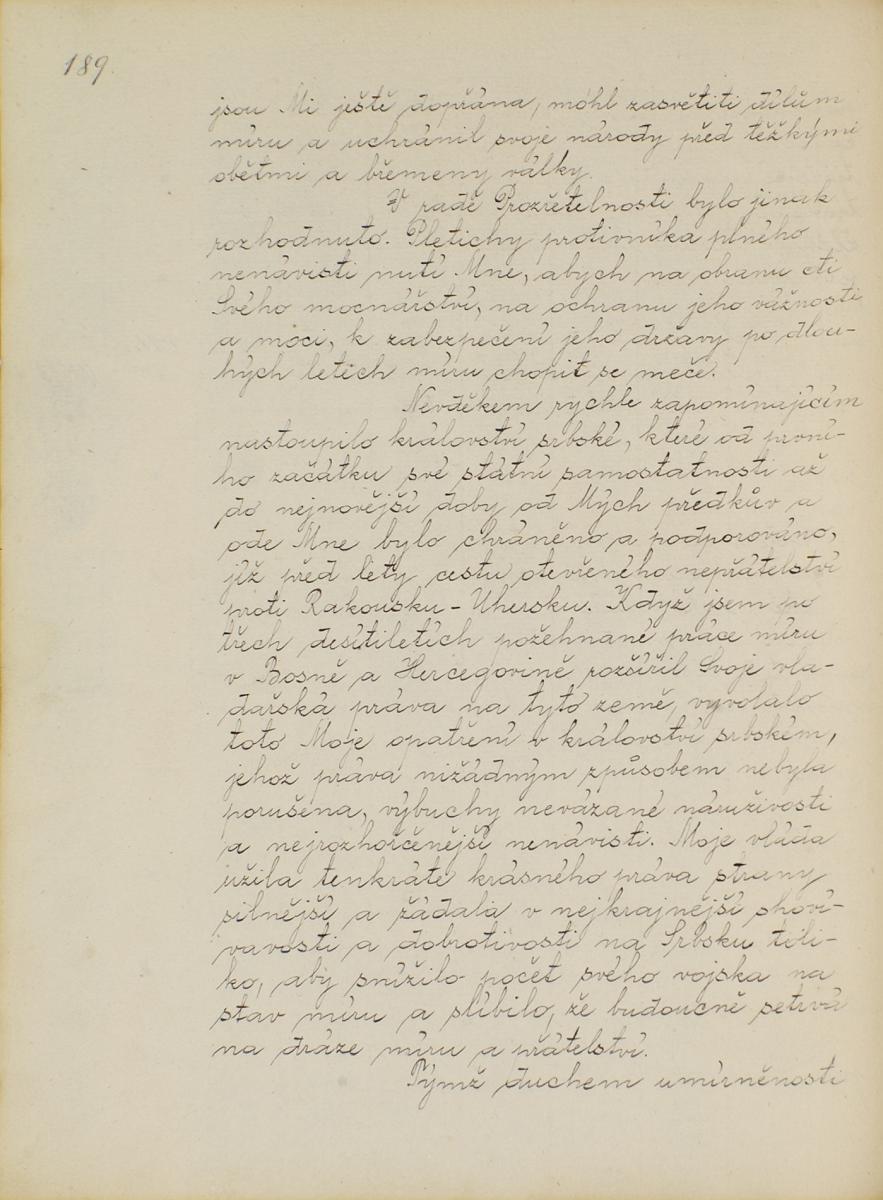 189.
jsou Mi ještě dopřána, móhl zasvětiti dílům
míru a uchránil svoje národy před těžkými
obětmi a břemeny války.
V radě Prozřetelnosti bylo jinak
rozhodnuto. Pletichy protivníka plného
nenávisti nutí Mne, abych na obranu cti
Svého mocnářství, na ochranu jeho vážnosti
a moci, k zabezpečení jeho državy po dlou-
hých letech míru chopit se meče.
Nevděkem rychle zapomínajícím
nastoupilo království srbské, které od první-
ho začátku své státní samostatnosti až
do nejnovější doby od Mých předkův a
ode Mne bylo chráněno a podporováno,
již před lety cestu otevřeného nepřátelství
proti Rakousku-Uhersku. Když jsem po
třech desítiletích požehnané práce míru
v Bosně a Hercegovině rozšířil Svoje vla-
dařská práva na tyto země, vyvolalo
toto Moje opatření v království srbském,
jehož práva nižádným způsobem nebyla
porušena, výbuchy nevázané náruživosti
a nejrozhořčenější nenávisti. Moje vláda
užila tenkráte krásného práva strany
silnější a žádala v nejkrajnější shoví-
vavosti a dobrotivosti na Srbsku toli-
ko, aby snížilo počet svého vojska na
stav míru a slíbilo, že budoucně setrvá
na dráze míru a přátelství.
Týmž duchem umírněnosti